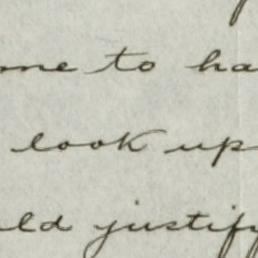 ome to ha
look up
uld justify